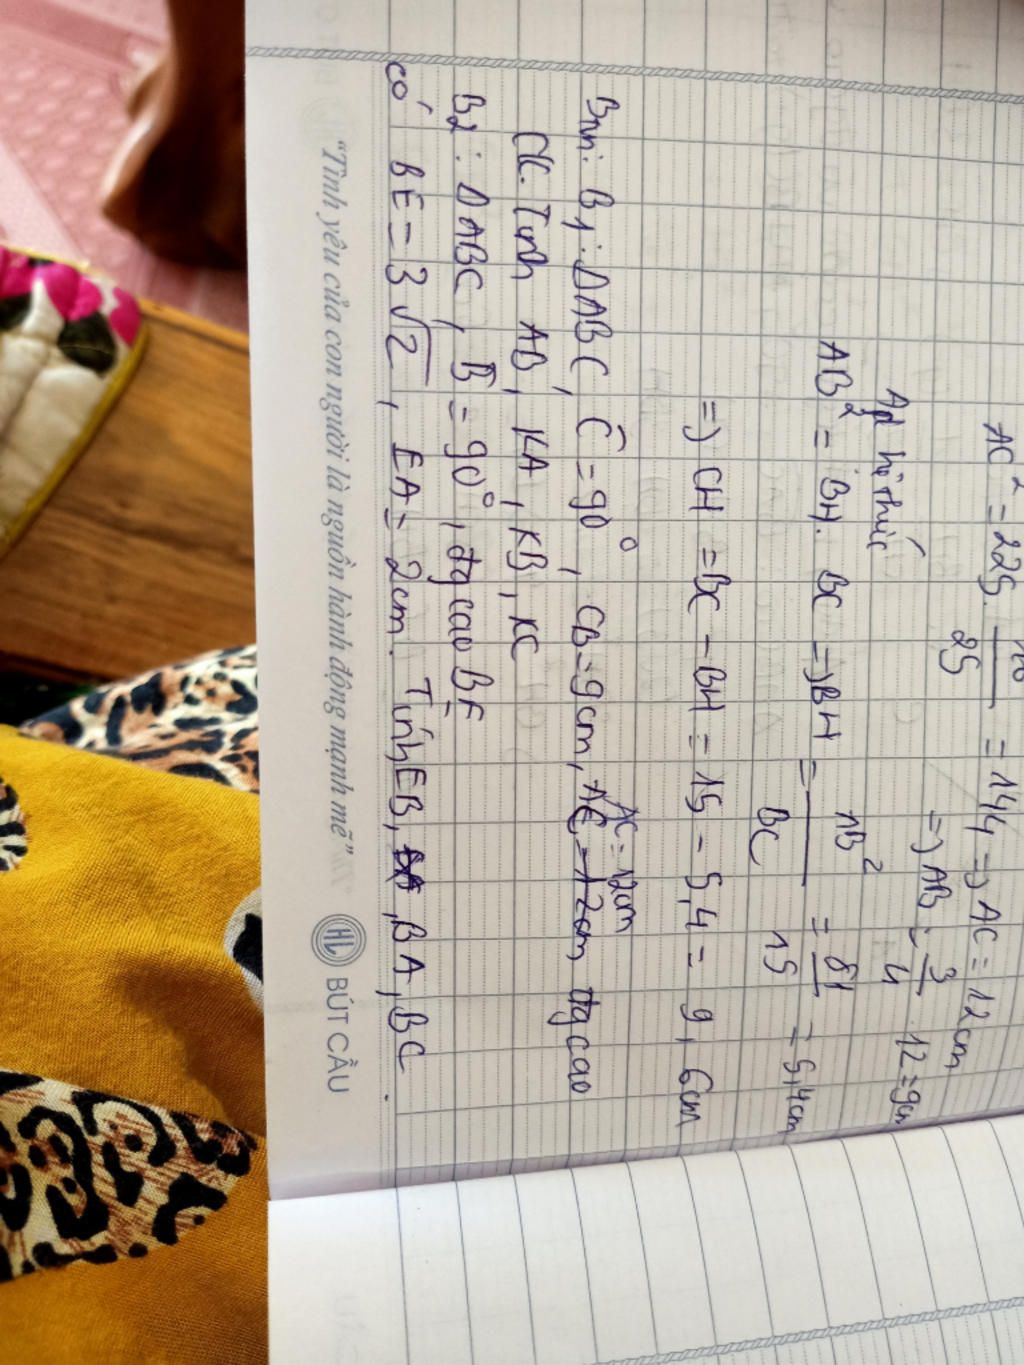 AC² = 225 . 16/25 = 144 => AC = 12cm
=> AB = 3/4 . 12 = 9cm
Ad hệ thức
AB² = BH . BC => BH = AB²/BC = 81/15 = 5,4cm
=> CH = BC - BH = 15 - 5,4 = 9,6cm
AC = 12cm
Bm: B1: ΔABC, Ĉ = 90°, CB = 9cm, đg cao
CK. Tính AB, KA, KB, KC
B2: ΔABC, B̂ = 90°, đg cao BE
có BE = 3√2, EA = 2cm. Tính EB, BA, BC.
"Tình yêu của con người là nguồn hành động mạnh mẽ" HL BÚT CẦU